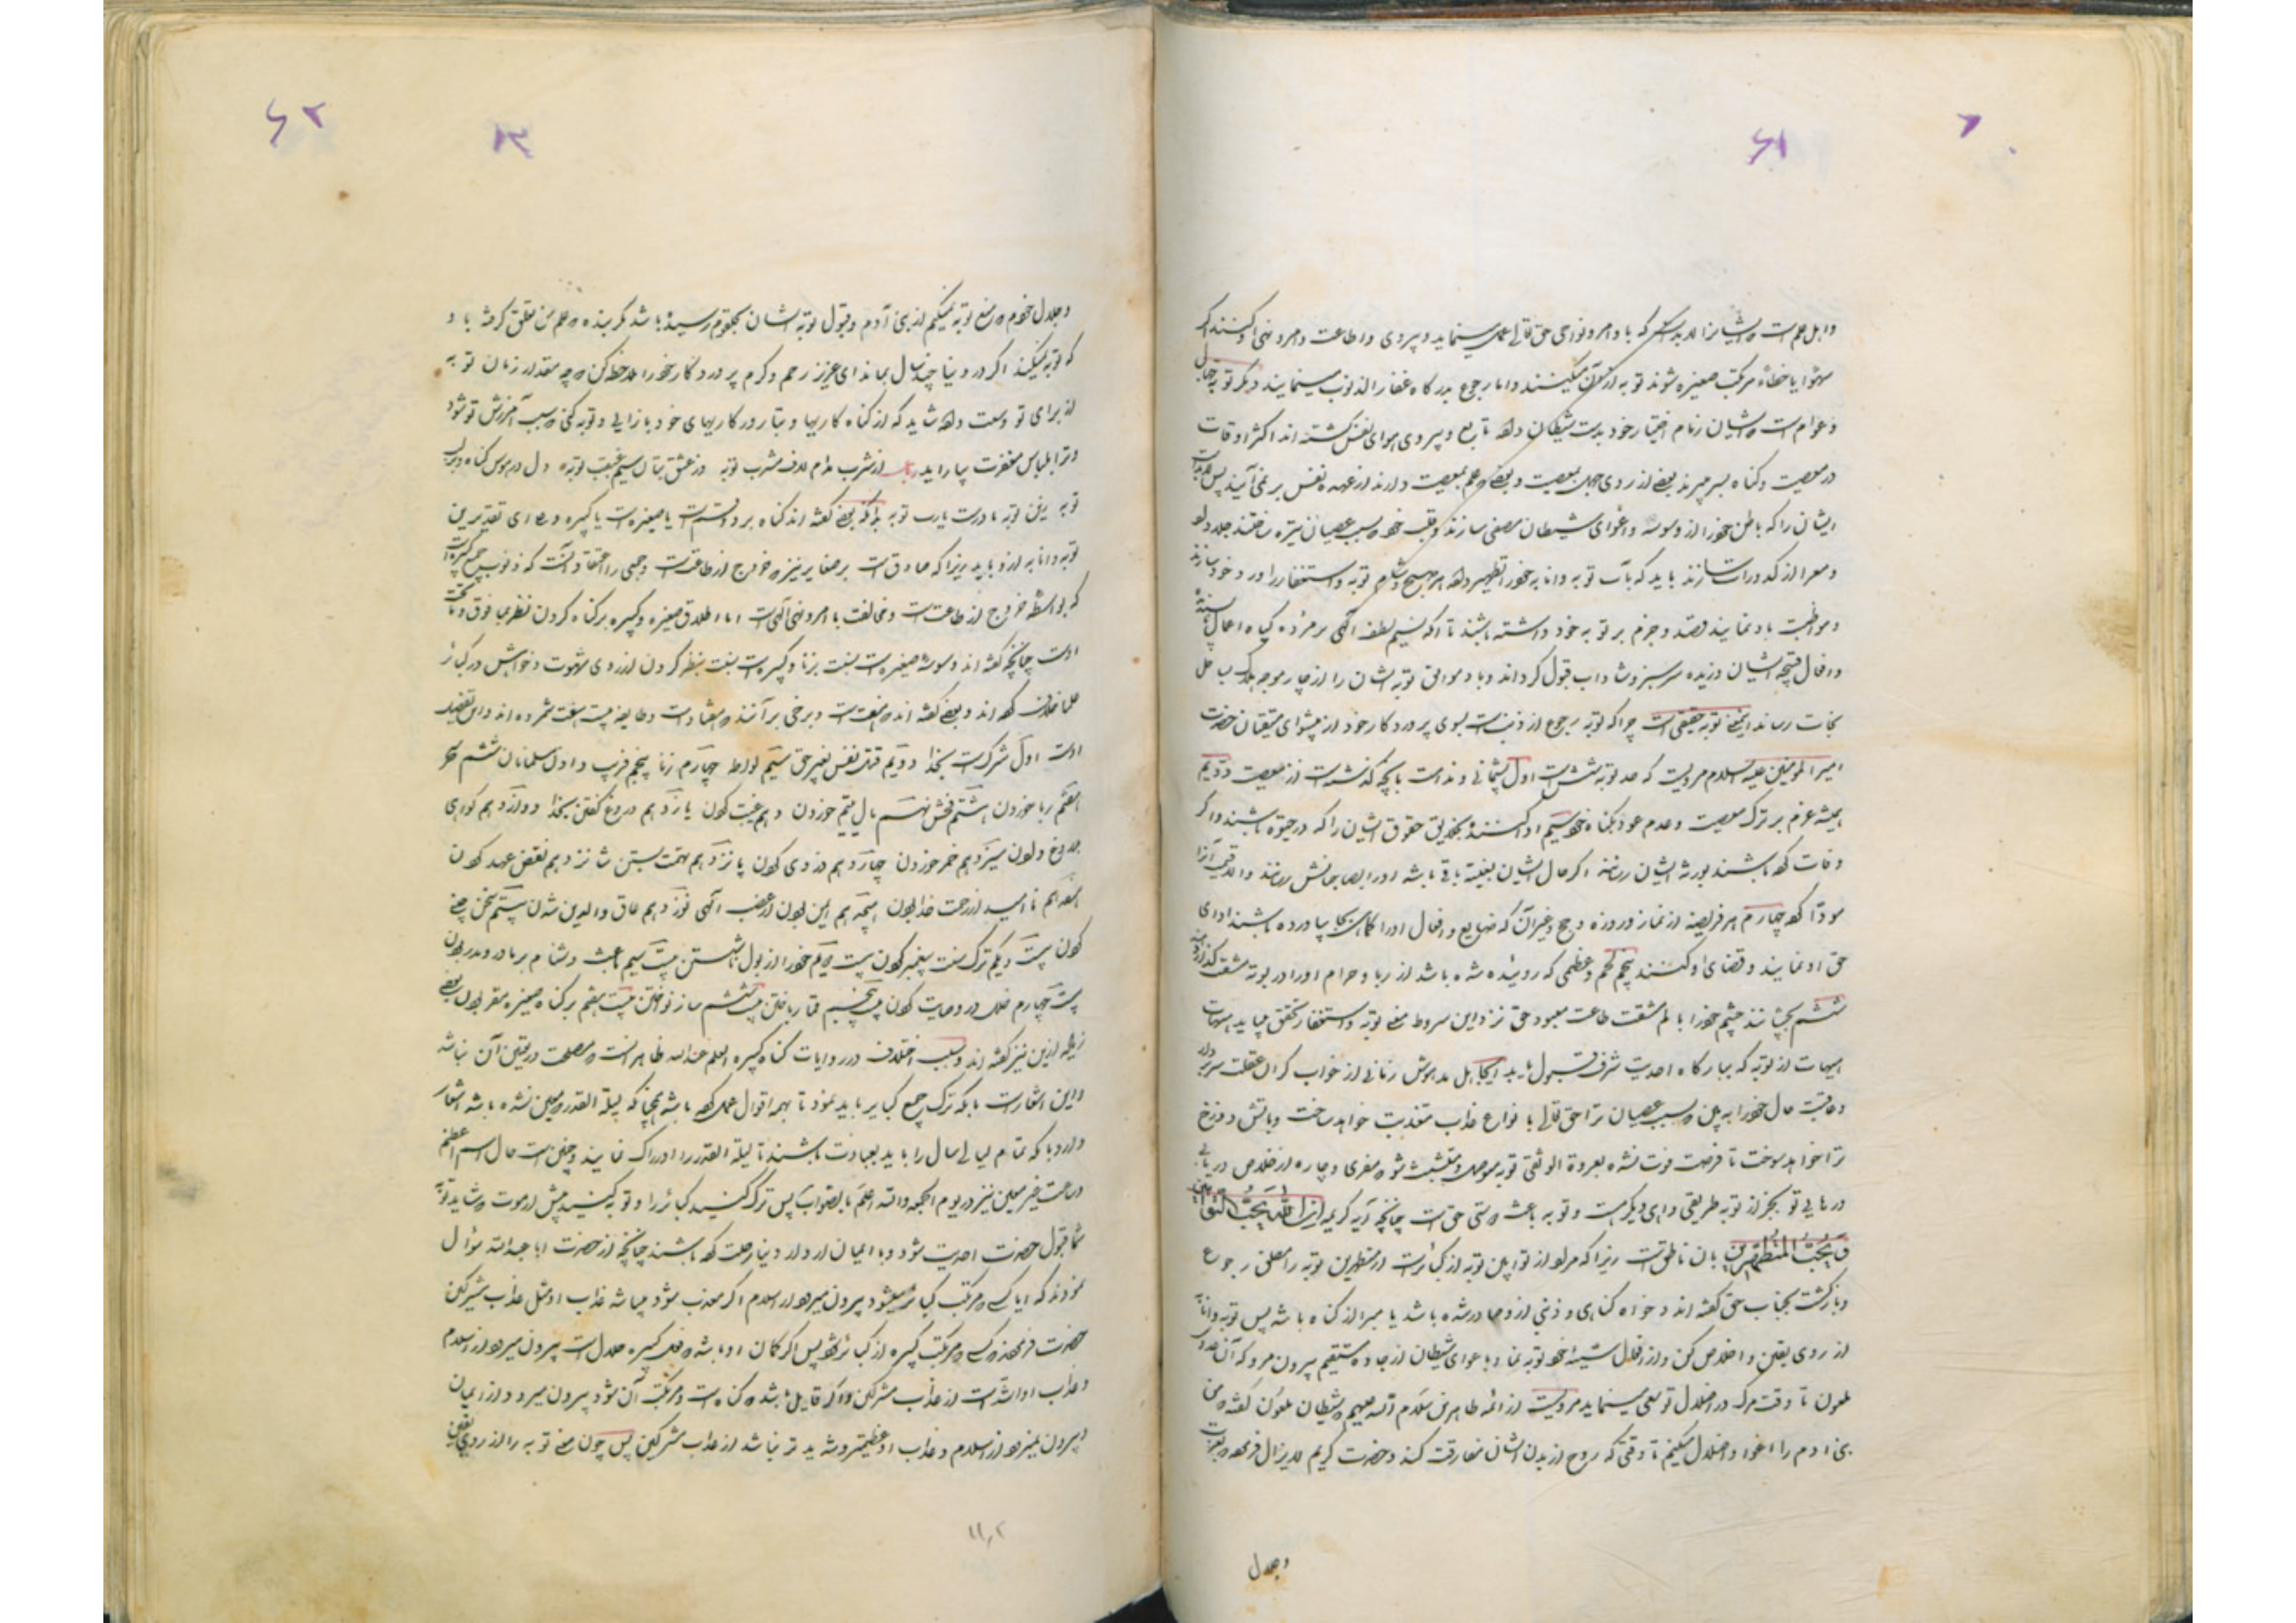 ۶۱
و اهل علمست
سهوا یا خطاء مرتکب صغیره شوند توبه از آن میکنند و انا رجوع بدرگاه غفار الذنوب مینمایند دیگر توبه جهال
و عوام است که ایشان زمام اختیار خود بدست شیطان داده تابع و پیروی هوای نفس گشته اند اکثر اوقات
در معصیت و گناه بسر میبرند بعضی از روی جهل بمعصیت و بعضی که علم بمعصیت دارند از عهده نفس بر نمی آیند پس
ایشان را که باطن خود را از وسوسه و اغوای شیطان مصفی سازند و قلب خود که بسبب عصیان تیره ساختند جلا داده
و معرا از کدورات سازند باید که بآب توبه و انابه خود را تطهیر داده هر صبح و شام توبه و استغفار را ورد خود سازند
و مواظبت باو نمایند و قصد و جزم بر توبه خود داشته باشند تا آنکه نسیم لطف الهی بر مرده گیاه اعمال
و افعال قبیحه ایشان وزیده سرسبز و شاداب قبول گرداند و باد موافق توبه ایشان را از چار موجه هلاک بساحل
نجات رساند اینمعنی توبه حقیقی است چرا که توبه رجوع از ذنب است بسوی پروردگار خود از پیشوای متقیان حضرت
امیر المومنین علیه السلام مرویست که حد توبه شش است اول پشیمانی و ندامت بانچه گذشته است از معصیت دویم
همیشه عزم بر ترک معصیت و عدم عود بگناه خود سیم ادا کنند بخلایق حقوق ایشان را که در حیوة باشند و اگر
وفات کرده باشند بورثه ایشان رسانند
مودا کرده چهارم هر فریضه از نماز و روزه و حج و غیر آن که ضایع و افعال او را کماهی بجا نیاورده باشند ادای
حق او نمایند و قضای او کنند پنجم لحم و عظمی که روئیده شده باشد از ربا و حرام او را در بوته مشقت
ششم بچشانند جسم خود را بالم مشقت طاعت معبود حق نزد این شروط معنی توبه و استغفار تحقق میابد هیهات
هیهات از توبه که ببارگاه احدیت شرف قبول یابد ایجاهل مدهوش زمانی از خواب گران غفلت سر بردار
و عاقبت حال خود را به بین که بسبب عصیان ترا حق تعالی بانواع عذاب معذب خواهد ساخت و بآتش دوزخ
ترا خواهد سوخت تا فرصت فوت نشده بعروة الوثقی توبه موصل و متشبث شو که مفری و چاره از خلاص
در مانی تو بجز از توبه طریقی و راهی دیگر نیست و توبه باعث دوستی حق است چنانچه آیه کریمه ان الله یحب التوابین
و یحب المتطهرین بان ناطقست زیرا که مراد از توابین توبه از کبائر است از متطهرین توبه را مطلق رجوع
و بازگشت بجناب حق گفته اند خواه گناهی و ذنبی از و صادر شده باشد یا مبرا از گناه باشد پس توبه و انابه
از روی یقین و اخلاص کن و از افعال شنیعه خود توبه نما و باغوای شیطان از جاده مستقیم بیرون مرو که آن عدو
ملعون تا وقت مرگ در اضلال تو سعی مینماید مرویست از ائمه طاهرین سلام الله علیهم که شیطان ملعون گفته که من
بنی آدم را اغوا و اضلال میکنم تا وقتی که روح از بدن ایشان مفارقت کند و حضرت کریم لایزال فرموده بعزت
و جلال
۶۲
و جلال خودم که منع توبه نمیکنم از بنی آدم و قبول توبه ایشان
که توبه نمیکند اگر در دنیا چند سال بماند ای عزیز رحم و کرم پروردگار خود را ملاحظه کن که چه مقدار زمان توبه
از برای تو وسعت داده شاید که از گناه کاریها و تباه روزگاریهای خود باز آئی و توبه کنی که سبب آمرزش تو شود
و ترا بلباس مغفرت بیاراید
توبه زین توبه نادرست یارب توبه بدانکه بعضی گفته اند گناه بر دو قسم است یا صغیره است یا کبیره
توبه و انابه از و باید زیرا که صادق است بر صغایر نیز که خروج از طاعت است و جمعی را اعتقاد آنست که ذنوب جمیع کبیره است
که بواسطه خروج از طاعتست و مخالفت با امر و نهی الهیست اما اطلاق صغیره و کبیره بر گناه کردن نظر بما فوق و ما تحت
اوست چنانچه گفته اند بوسه صغیره است بنسبت بزنا و کبیره است بنسبت بنظر کردن از روی شهوت و خواهش در کبائر
علما خلاف کرده اند و بعضی گفته اند که هفتست و برخی بر آنند که هفتاد است
اوست اول شرکست بخدا دویم قتل نفس بغیر حق سیم لواطه چهارم زنا پنجم
هفتم ربا خوردن هشتم فحش نهم مال یتیم خوردن دهم غیبت کردن یازدهم دروغ گفتن بخدا دوازدهم گواهی
بدروغ دادن سیزدهم خمر خوردن چهاردهم دزدی کردن پانزدهم تهمت بستن شانزدهم نقض عهد کردن
هفدهم نا امید از رحمت خدا بودن هیجدهم ایمن بودن از غضب الهی نوزدهم عاق والدین شدن بیستم سخن چینی
کردن بیست و یکم ترک سنت پیغمبر کردن بیست دویم خود را از بول ناشستن بیست سیم باعث دشنام بر مادر و پدر بودن
بیست چهارم ظلم در وصایت کردن بیست پنجم قمار باختن بیست ششم ساز نواختن بیست هفتم بر گناه صغیره مصر بودن
زیاده از این نیز گفته اند و سبب اختلاف در روایات گناه کبیره العلم عند الله ظاهر آنست که مصلحت در تعیین آن نباشد
و این اشعار است بانکه ترک جمیع کبایر باید نمود تا بهمه اقوال عمل کرده باشد همچنانکه لیلة القدر که معین نشده باشد اشعار
دارد بانکه تمام لیالی سال را باید بعبادت باشند تا لیلة القدر را ادراک نمایند و چنین است حال اسم اعظم
و ساعت غیر معین نیز در یوم الجمعه و الله اعلم بالصواب پس ترک کنید کبائر را و توبه کنید پیش از موت که شاید توبه
شما قبول حضرت احدیت شود و با ایمان از دار دنیا رحلت کرده باشند چنانچه از حضرت ابا عبدالله سؤال
نمودند که آیا کسی که مرتکب کبائر میشود بیرون میرود از اسلام اگر معذب شود میباشد عذاب او مثل عذاب مشرکین
حضرت فرمودند کسی که مرتکب کبیره از کبائر شود پس اگر گمان او باشد که فعل کبیره حلال است بیرون میرود از اسلام
و عذاب او اشد است از عذاب مشرکین و اگر قایل باشد که گناه است و مرتکب آن شود بیرون میرود از ایمان
و بیرون نمیرود از اسلام و عذاب او عظیمتر و شدید تر نباشد از عذاب مشرکین پس چون معنی توبه را از روی یقین